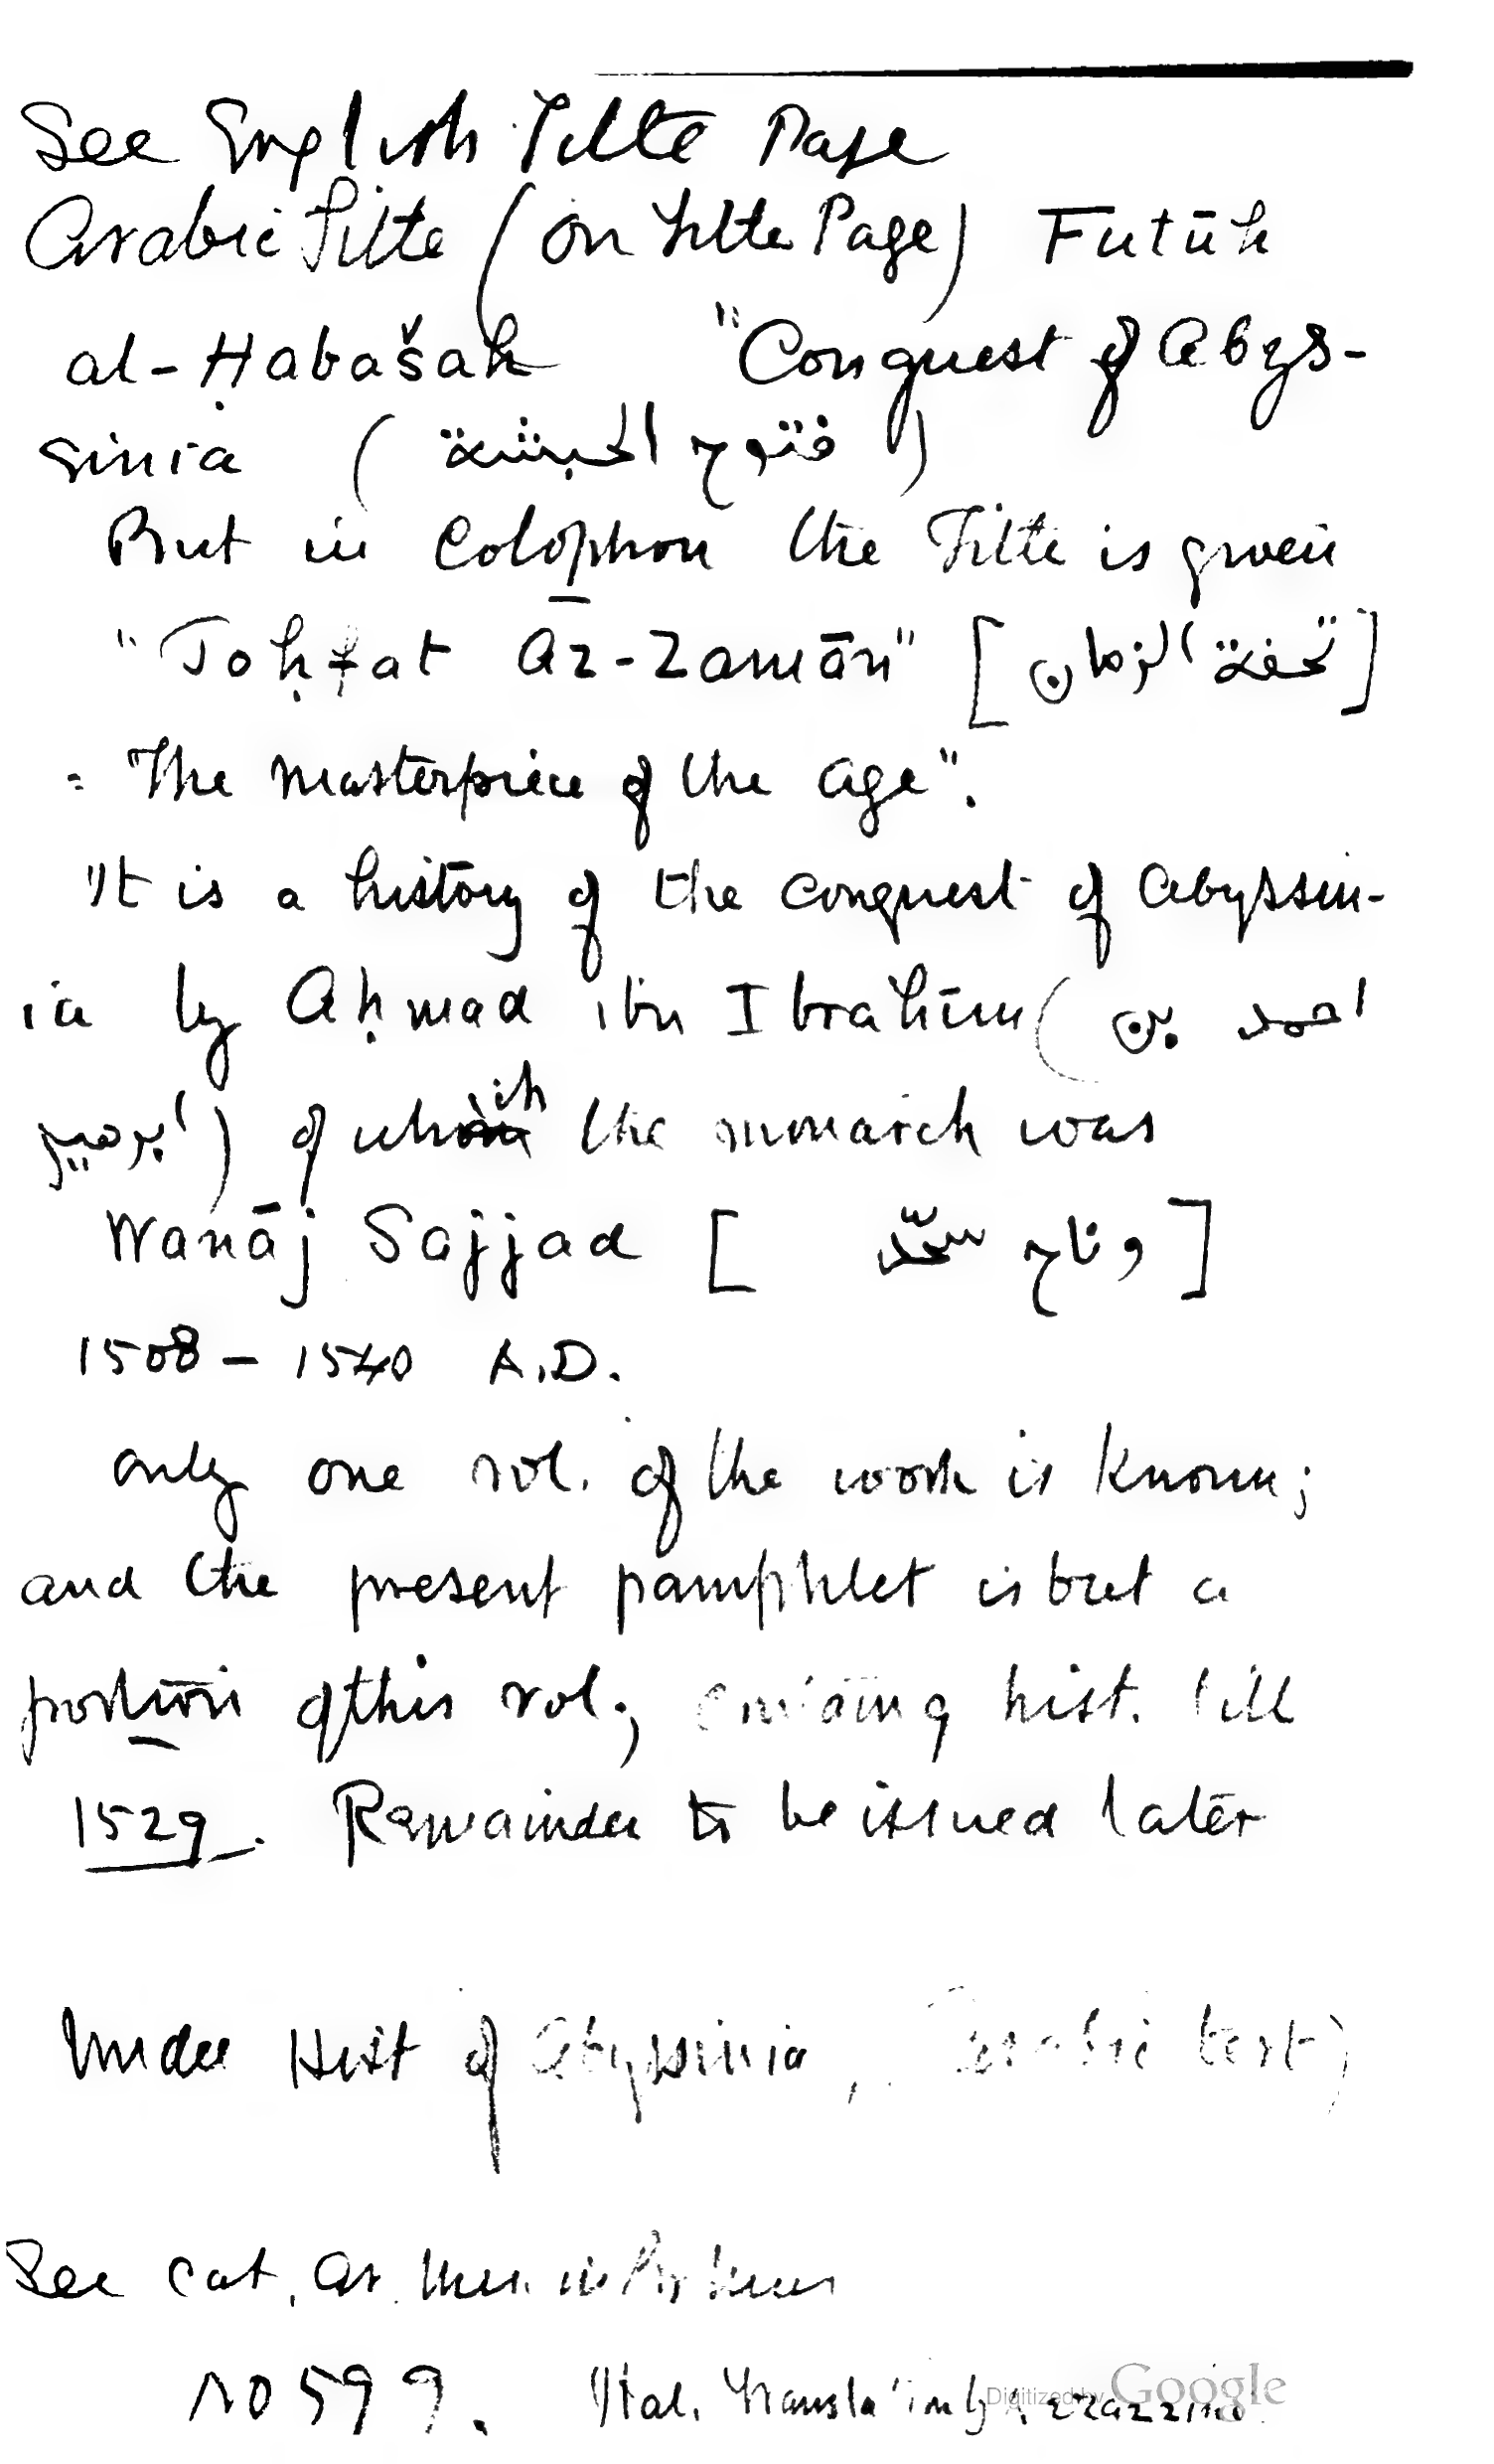 See English Title Page
Arabic Title (on Title Page) Futūh
al-Ḥabašah "Conquest of Abys-
sinia (فتوح الحبشة)
But in Colophon the Title is given
"Toḥfat Āz-Zamān" [تحفة الزمان]
= "The masterpiece of the age".
It is a history of the conquest of Abyssin-
ia by Aḥmad ibn Ibrahīm (احمد بن
ابرهيم) of which the monarch was
Wanāj Sajjad [وناج سجّد]
1508 - 1540 A.D.
only one vol. of the work is known;
and the present pamphlet is but a
portion of this vol.; hist. till
1529. Remainder to be issued later
Under Hist of Abyssinia, Arabic text)
See Cat. Ar. Mus.
No 599. Ital. Translation by
Digitized by Google